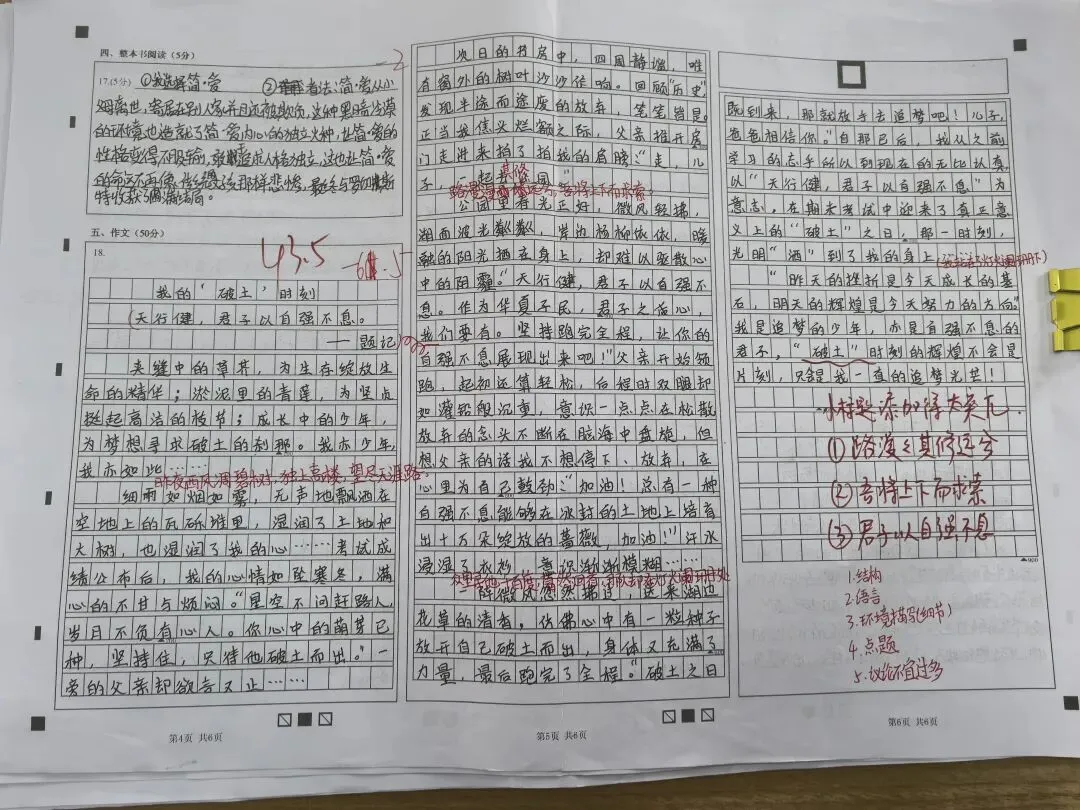 四、整本书阅读（5分）
-2
17.(5分) ①我选择简·爱 ②看法:简·爱从小
姆离世，寄居在别人家并且还被欺负，这种黑暗冷漠
的环境也造就了简·爱内心的独立火种，让简·爱的
性格变得不服输，追求人格独立，这也让简·爱
特收获了圆满结局。
五、作文（50分）
18.
43.5
我的‘破土’时刻
天行健，君子以自强不息。
——题记
夹缝中的草芥，为生存绽放生
命的精华；淤泥里的青莲，为坚贞
挺起高洁的枝节；成长中的少年，
为梦想寻求破土的刹那。我亦少年，
我亦如此……
昨夜西风凋碧树，独上高楼，望尽天涯路。
细雨如烟如雾，无声地飘洒在
空地上的瓦砾堆里，湿润了土地和
大树，也湿润了我的心……考试成
绩公布后，我的心情如坠寒冬，满
心的不甘与烦闷。“星空不问赶路人，
岁月不负有心人。你心中的萌芽已
种，坚持住，只待他破土而出。”一
旁的父亲却欲言又止……
第4页 共6页
次日的书房中，四周静谧，唯
有窗外的树叶沙沙作响。回顾“历史”
发现半途而途废的放弃，笔笔皆是。
正当我焦头烂额之际，父亲推开房
门走进来拍了拍我的肩膀：“走，儿
子，一起去公园。”
路漫漫其修远兮，吾将上下而求索。
公园里春光正好，微风轻拂，
湖面波光粼粼，岸边杨柳依依，暖
融的阳光洒在身上，却难以驱散心
中的阴霾。“天行健，君子以自强不
息。作为华夏子民，君子之信心，
我们要有。坚持跑完全程，让你的
自强不息展现出来吧！”父亲开始领
跑，起初还算轻松，后程时双腿却
如灌铅般沉重，意识一点点在松散
放弃的念头不断在脑海中盘旋，但
想父亲的话我不想停下、放弃，在
心里为自己鼓劲：“加油！总有一种
自强不息能够在冰封的土地上培育
出十万朵绽放的蔷薇，加油！”汗水
浸湿了衣衫，意识渐渐模糊……
众里寻他千百度，蓦然回首，那人却在灯火阑珊处
一阵微风忽然拂过，送来湖边
花草的清香，仿佛心中有一粒种子
放开自己破土而出，身体又充满了
力量，最后跑完了全程。“破土之日
第5页 共6页
既到来，那就放手去追梦吧！儿子，
爸爸相信你。”自那已后，我从之前
学习的忘乎所以到现在的无比认真
以“天行健，君子以自强不息”为
意志。在期末考试中迎来了真正意
义上的“破土”之日，那一时刻，
光明“洒”到了我的身上
“昨天的挫折是今天成长的基
石，明天的辉煌是今天努力的方向。”
我是追梦的少年，亦是自强不息的
君子，“破土”时刻的辉煌不会是
片刻，只会是我一直的追梦光芒！
小标题添加得太突兀
①路漫之其修远兮
②吾将上下而求索
③君子以自强不息
900
1.结构
2.语言
3.环境描写(细节)
4.点题
5.议论不宜过多
第6页 共6页